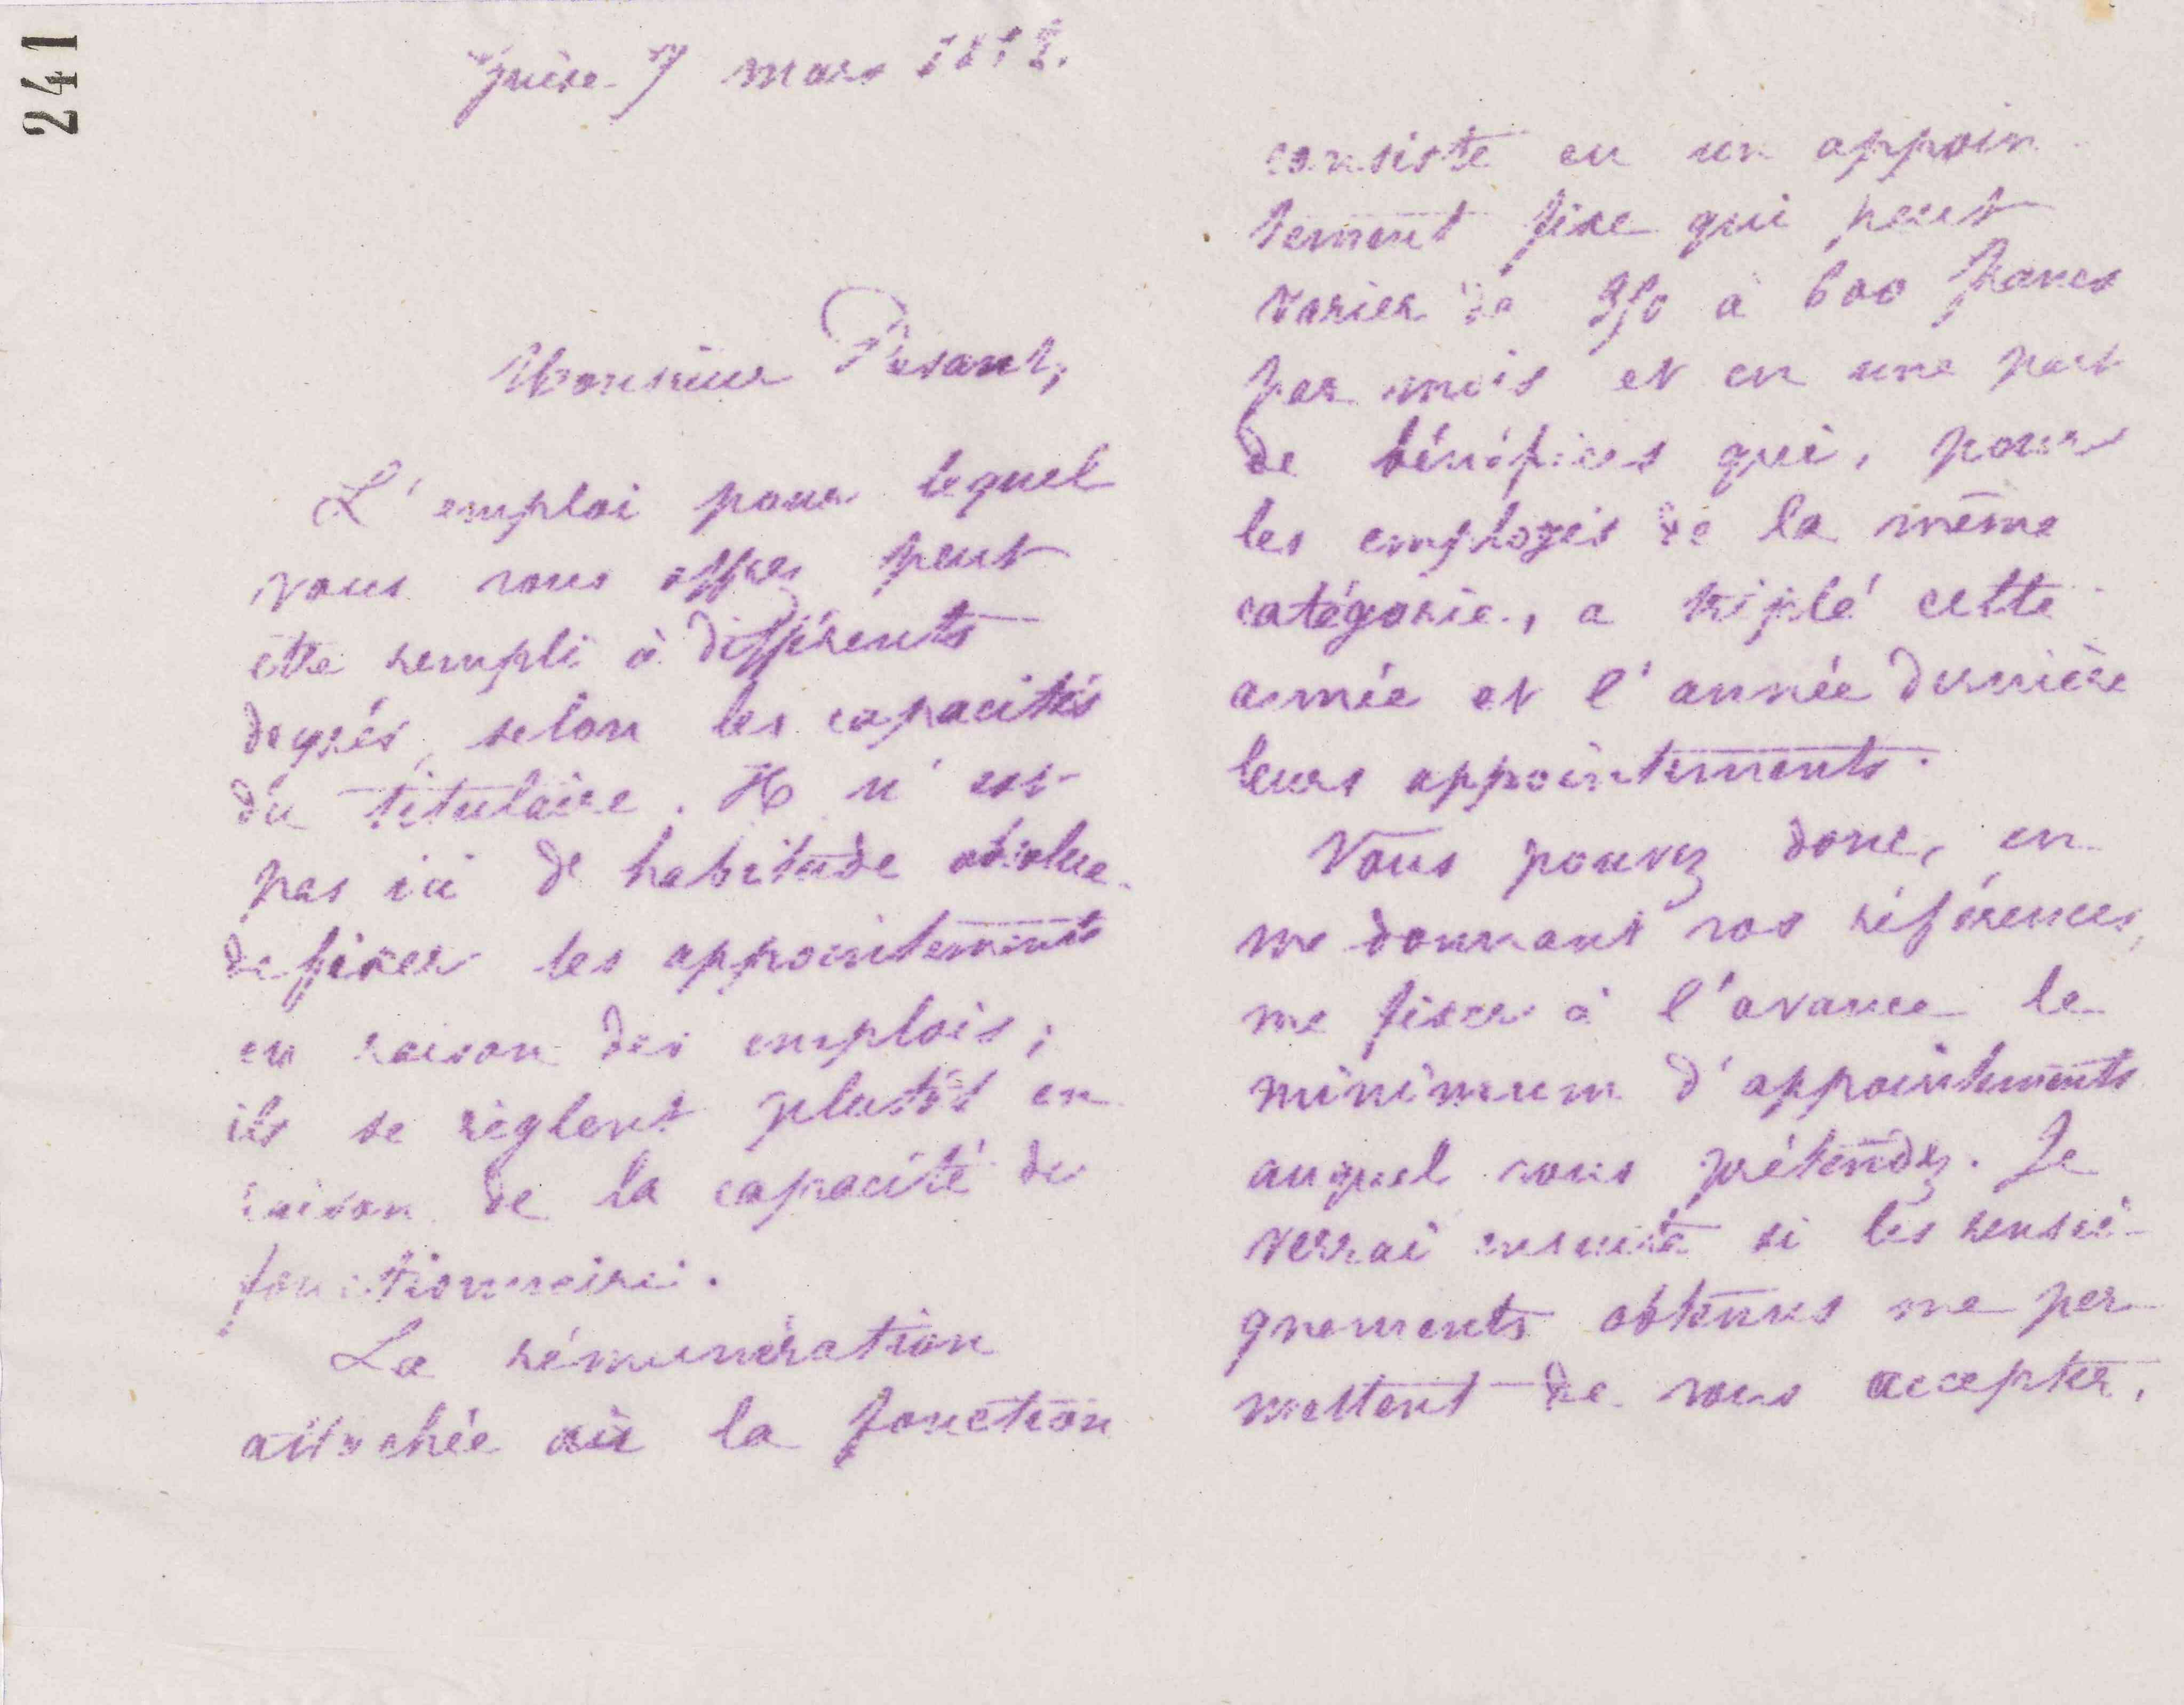 241
Guise 7 mars
Monsieur Pesant,
L'emploi pour lequel
vous vous offrez peut
être rempli à différents
degrés, selon les capacités
du titulaire. Il n'est
pas ici d'habitude absolue
de fixer les appointements
en raison des emplois ;
ils se règlent plutôt en
raison de la capacité du
fonctionnaire.
La rémunération
attachée à la fonction
consiste en un appoin
tement fixe qui peut
varier de à 600 francs
par mois et en une part
de bénéfices qui, pour
les employés de la même
catégorie, a triplé cette
année et l'année dernière
leurs appointements.
Vous pouvez donc, en
me donnant vos références,
me fixer à l'avance le
minimum d'appointements
auquel vous prétendez. Je
verrai ensuite si les rensei-
gnements obtenus me per
mettent de vous accepter.